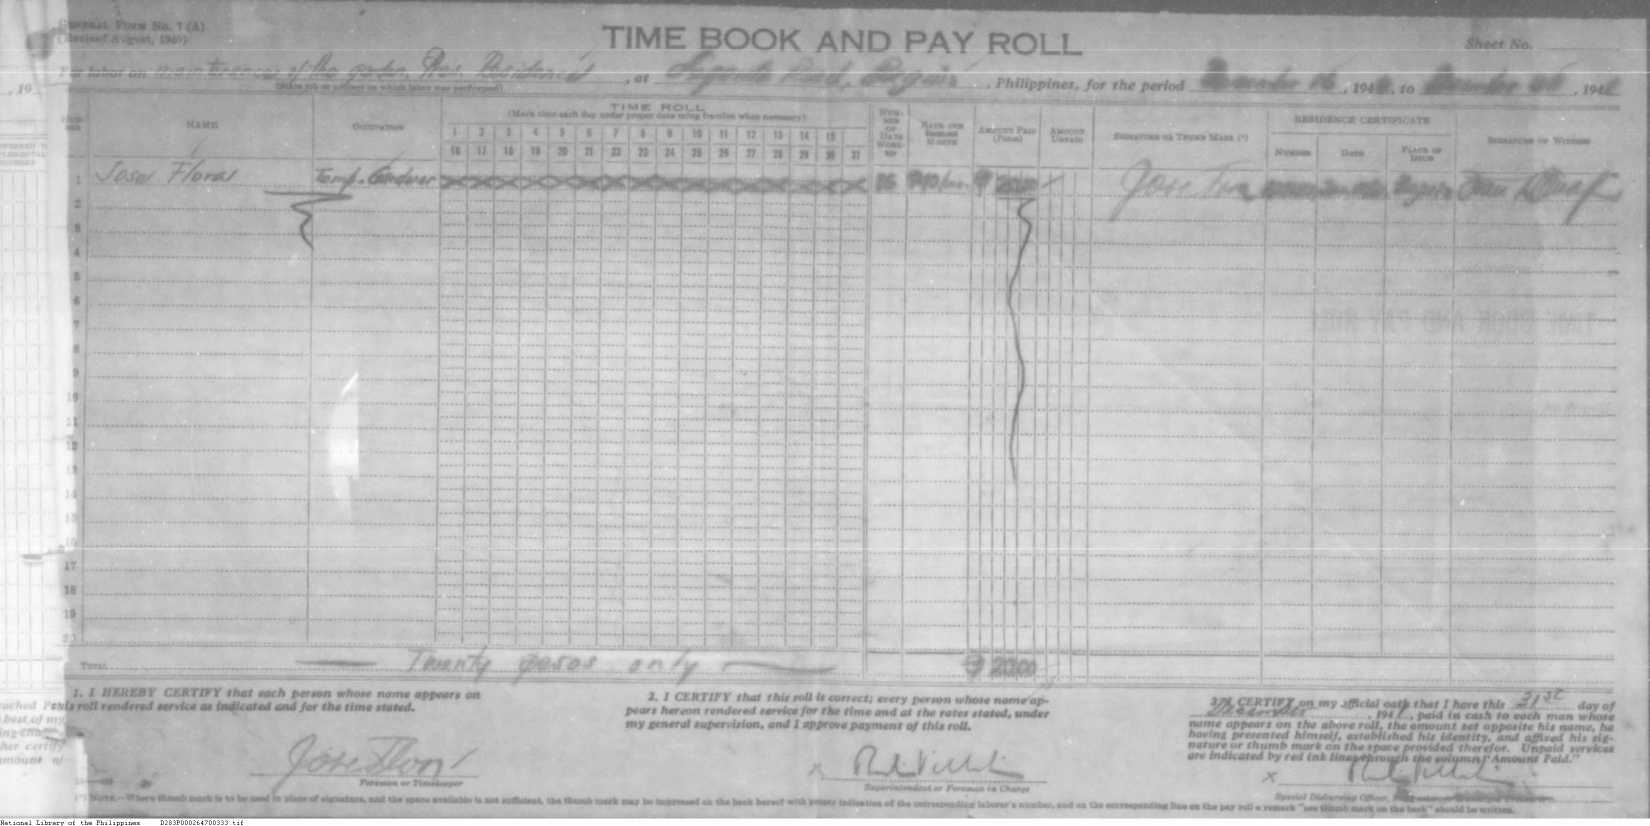 GENERAL FORM No. 7 (A)
(Revised August, 1940)
TIME BOOK AND PAY ROLL
Sheet No.
For labor on maintenance of the garden, Pres. Residence , at Road, Baguio , Philippines, for the period December 16 , 194 , to December , 194
, 19
NAME
OCCUPATION
TIME ROLL
(Mark time each day under proper date using fraction when necessary)
1 2 3 4 5 6 7 8 9 10 11 12 13 14 15
16 17 18 19 20 21 22 23 24 25 26 27 28 29 30 31
NUMBER OF DAYS WORKED
AMOUNT PAID (Pesos)
AMOUNT UNPAID
SIGNATURE OR THUMB MARK (*)
RESIDENCE CERTIFICATE
NUMBER
DATE
PLACE OF ISSUE
SIGNATURE OF WITNESS
1 Jose Flores Temp. Gardener 16 ₱40/mo. ₱ 20.00 Baguio
2
3
4
5
6
7
8
9
10
11
12
13
14
15
16
17
18
19
20
TOTAL Twenty pesos only ₱ 20.00
1. I HEREBY CERTIFY that each person whose name appears on
this roll rendered service as indicated and for the time stated.
Foreman or Timekeeper
2. I CERTIFY that this roll is correct; every person whose name ap-
pears hereon rendered service for the time and at the rates stated, under
my general supervision, and I approve payment of this roll.
x
Superintendent or Foreman in Charge
3. I CERTIFY on my official oath that I have this 31st day of
December , 194 , paid in cash to each man whose
name appears on the above roll, the amount set opposite his name, he
having presented himself, established his identity, and affixed his sig-
nature or thumb mark on the space provided therefor. Unpaid services
are indicated by red ink lines through the column "Amount Paid."
x
Special Disbursing Officer,
(*) NOTE.—Where thumb mark is to be used in place of signature, and the space available is not sufficient, the thumb mark may be impressed on the back hereof with proper indication of the corresponding laborer's number, and on the corresponding line on the pay roll a remark "see thumb mark on the back" should be written.
National Library of the Philippines D283P000264700333.tif